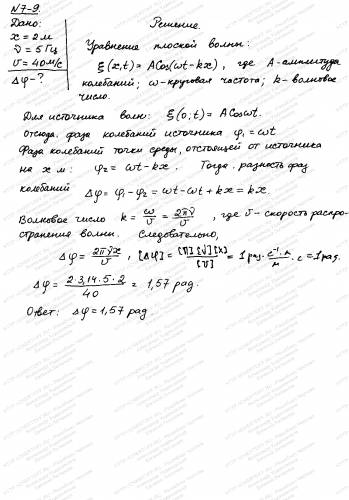 N7-9.
Дано:
x = 2 м
ν = 5 Гц
υ = 40 м/с
Δφ - ?
Решение.
Уравнение плоской волны:
ξ(x,t) = A Cos(ωt - kx), где A - амплитуда
колебаний; ω - круговая частота; k - волновое
число.
Для источника волн: ξ(0;t) = A Cos ωt.
Отсюда, фаза колебаний источника φ₁ = ωt
Фаза колебаний точки среды, отстоящей от источника
на x м: φ₂ = ωt - kx. Тогда разность фаз
колебаний Δφ = φ₁ - φ₂ = ωt - ωt + kx = kx.
Волновое число k = ω/υ = 2πν/υ, где υ - скорость распро-
странение волны. Следовательно,
Δφ = 2πνx/υ, [Δφ] = [π][ν][x]/[υ] = 1 рад. · с⁻¹·м/м · с = 1 рад.
Δφ = 2·3,14·5·2/40 = 1,57 рад.
Ответ: Δφ = 1,57 рад